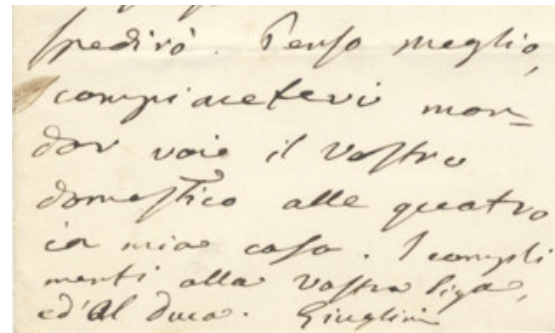 spedirò. Penso meglio,
compiacetevi man=
dar voie il vostro
domestico alle quatro
in mia casa. I compli
menti alla vostra
ed'al duca. Giuglini